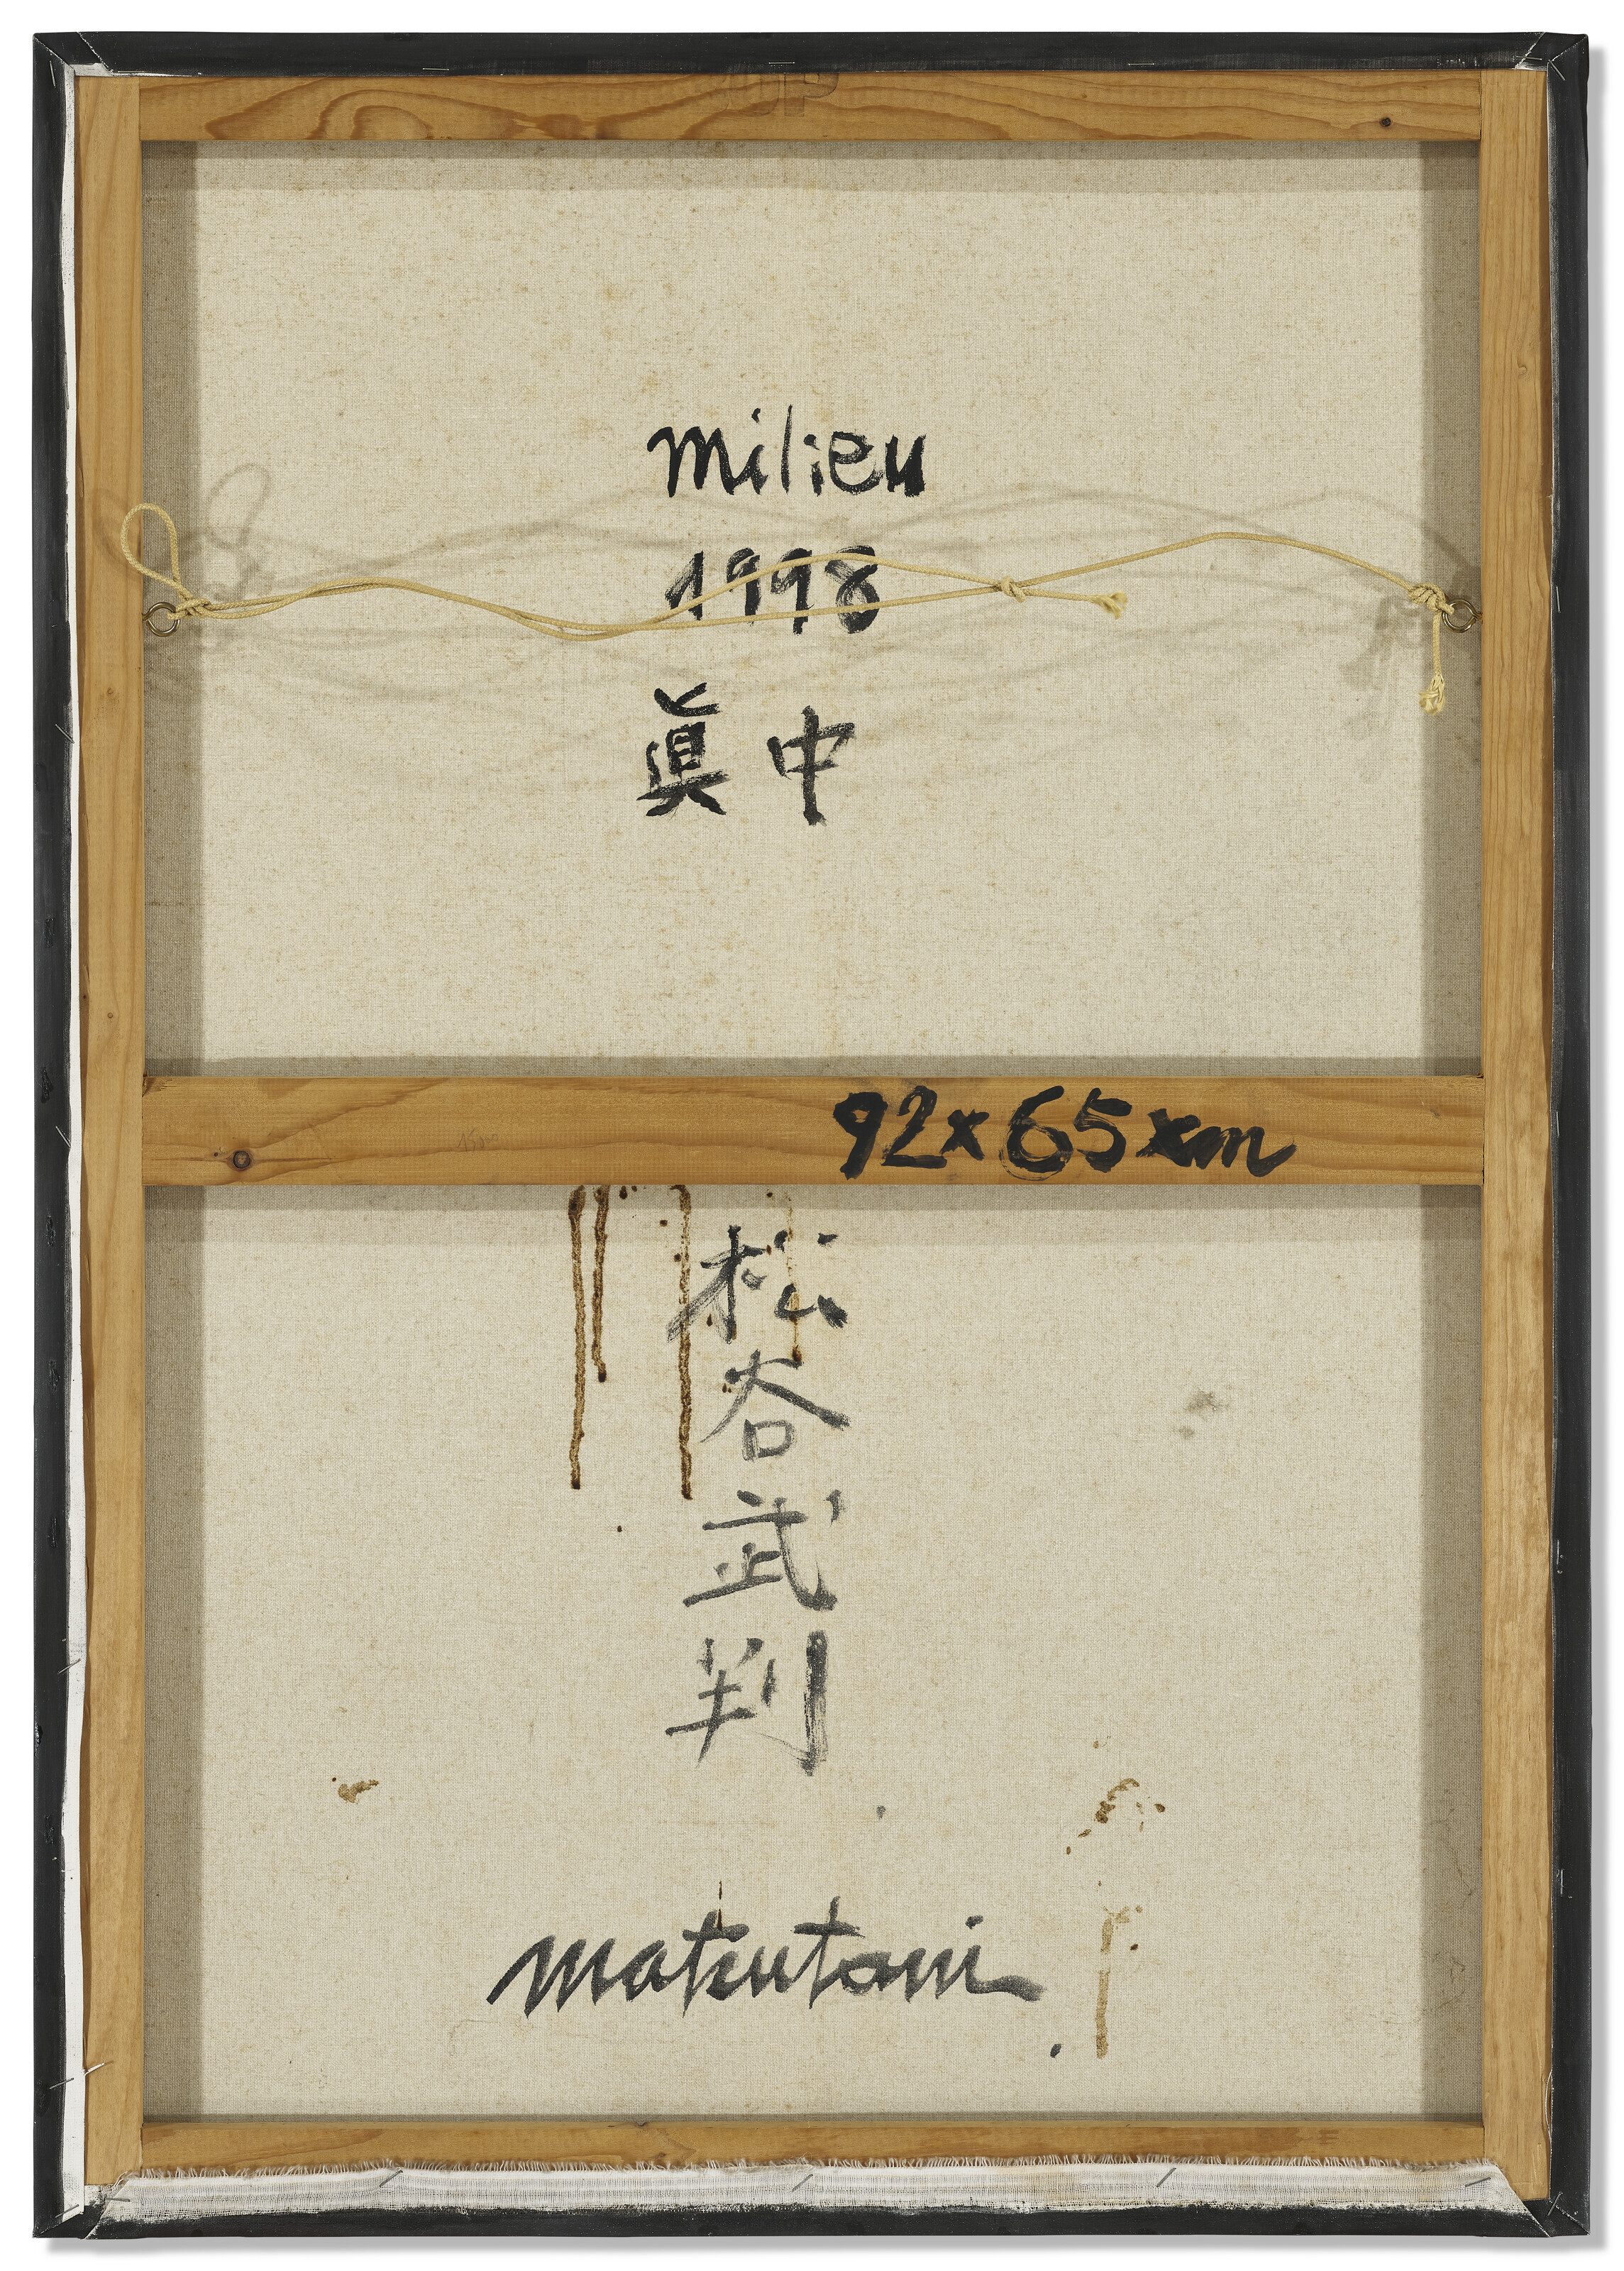 milieu
1998
眞中
92x65xm
松
谷
武
判
matsutani